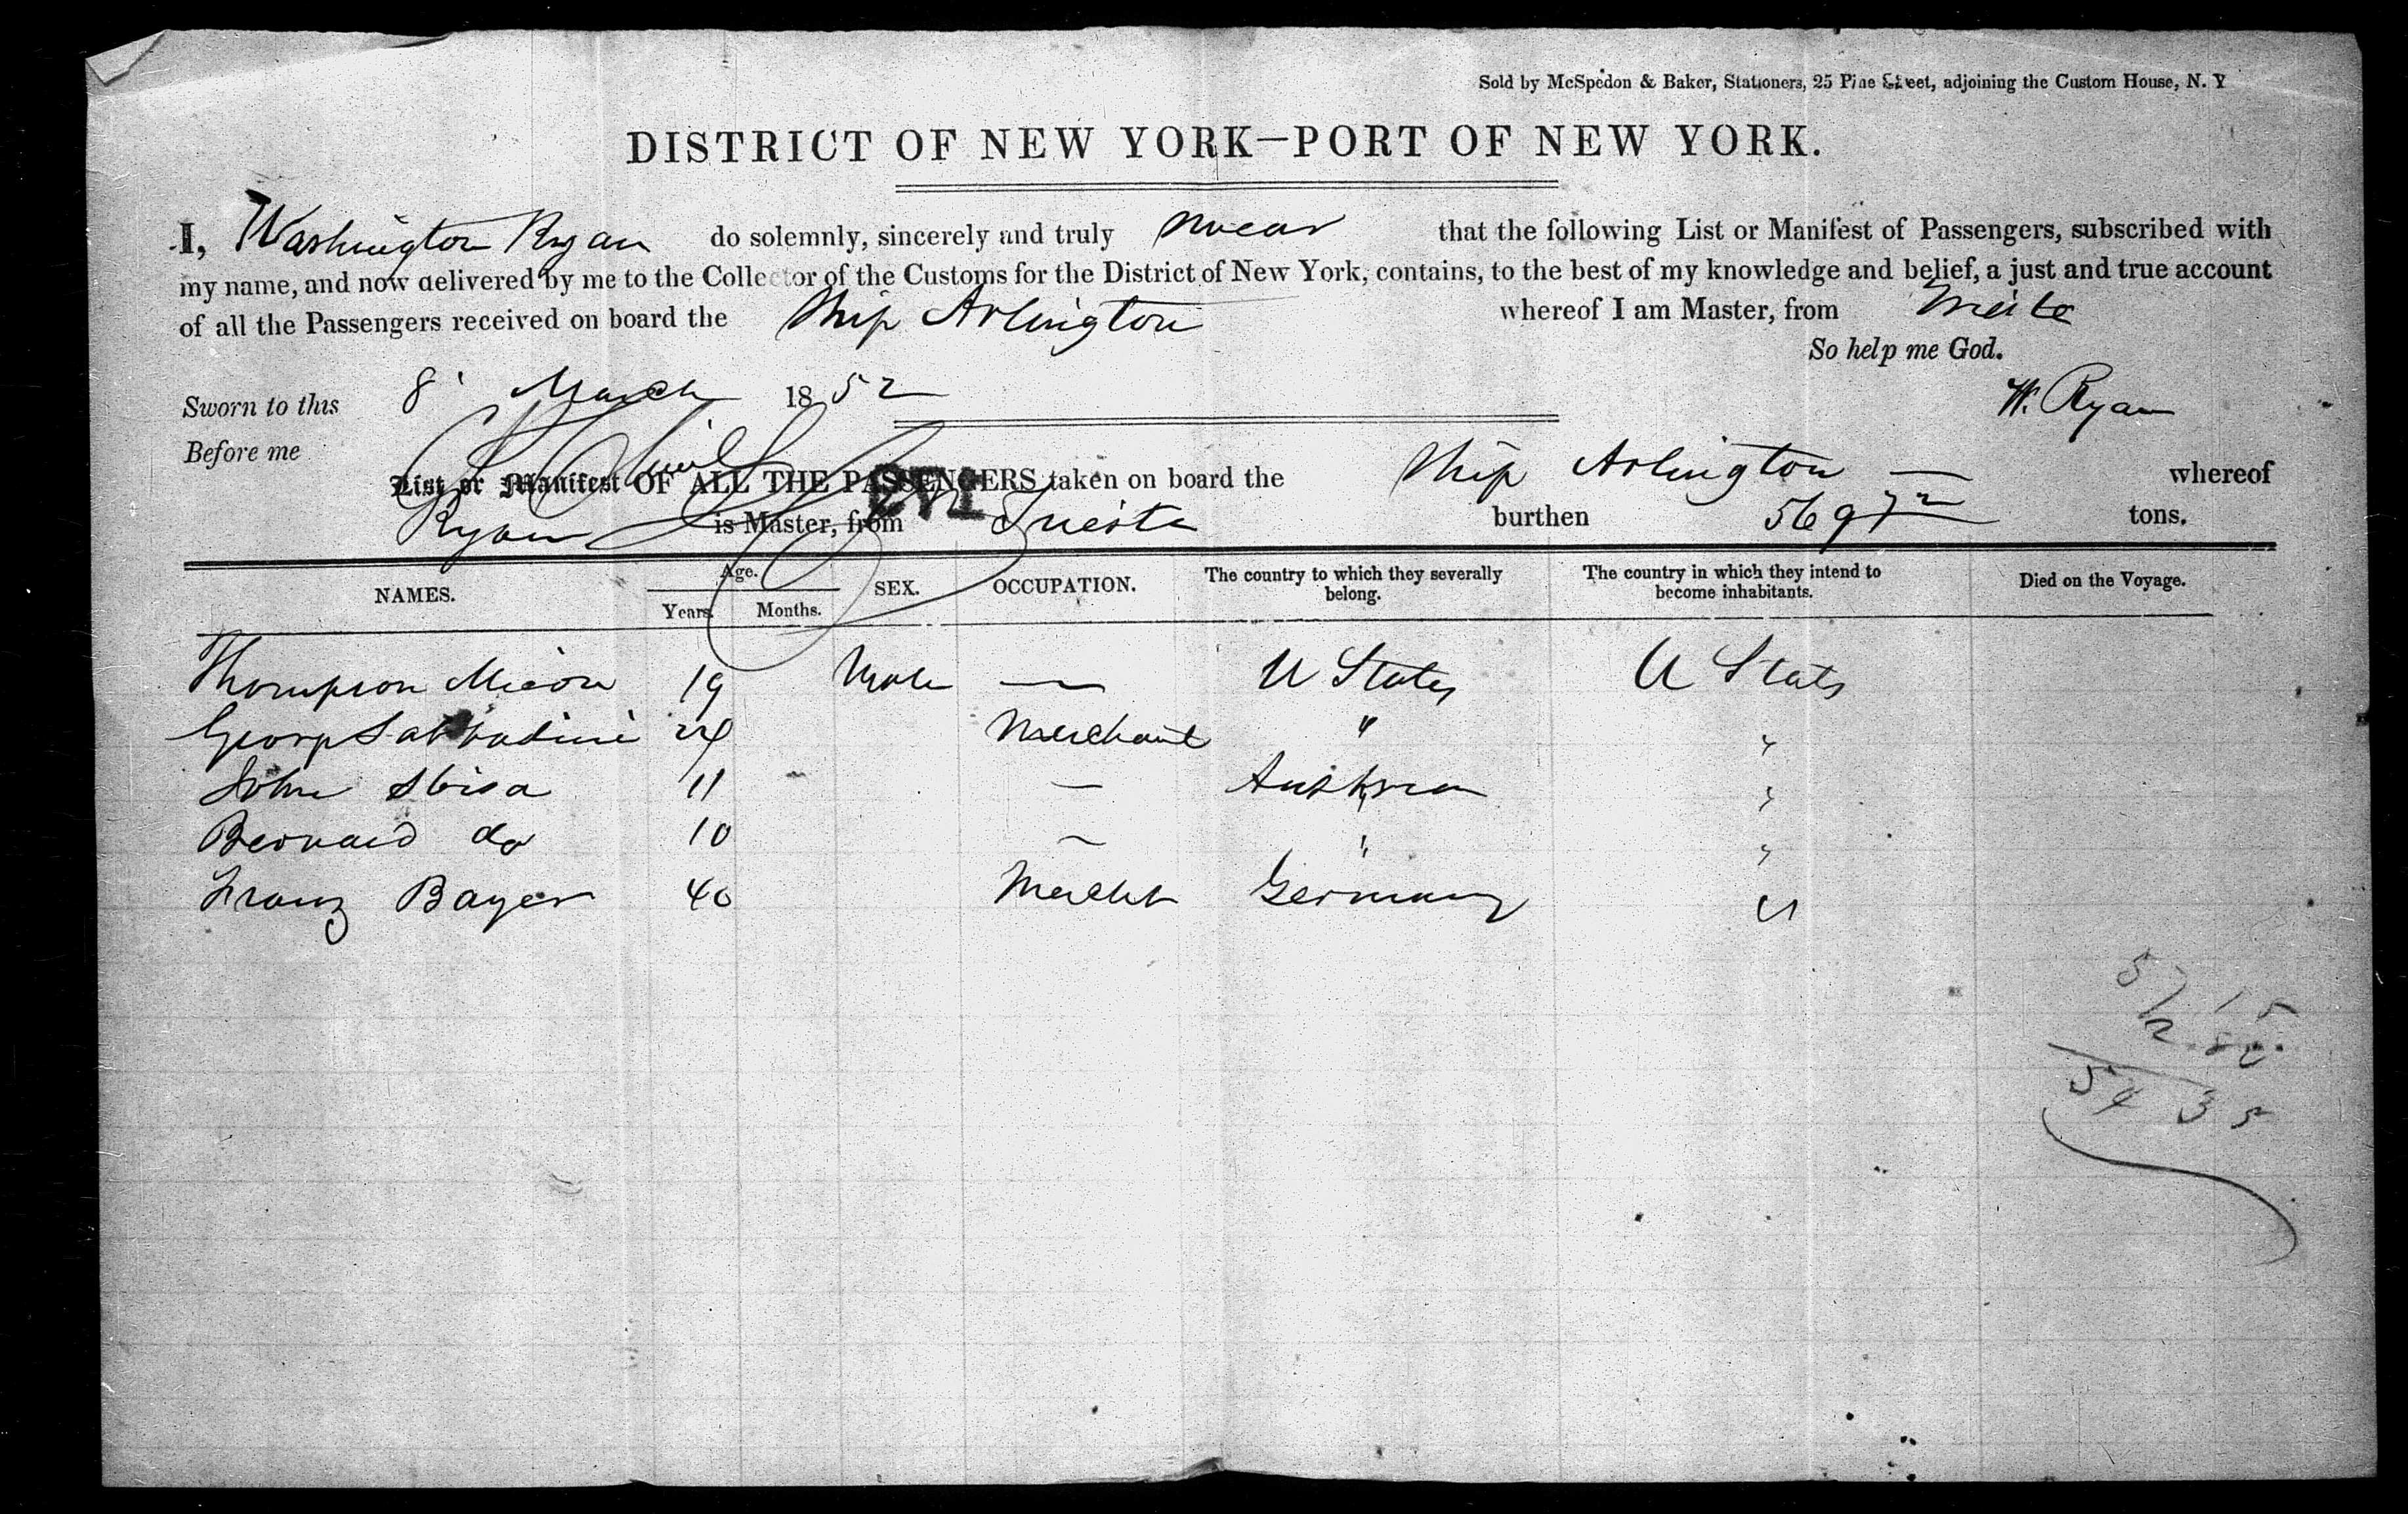 Sold by McSpedon & Baker, Stationers, 25 Pine Street, adjoining the Custom House, N. Y
DISTRICT OF NEW YORK—PORT OF NEW YORK.
I, Washington Ryan do solemnly, sincerely and truly swear that the following List or Manifest of Passengers, subscribed with
my name, and now delivered by me to the Collector of the Customs for the District of New York, contains, to the best of my knowledge and belief, a just and true account
of all the Passengers received on board the Ship Arlington whereof I am Master, from Trieste
So help me God.
Sworn to this 8 March 1852
W. Ryan
Before me
List or Manifest OF ALL THE PASSENGERS taken on board the Ship Arlington — whereof
Ryan is Master, from Trieste burthen tons.
NAMES. Age. Years. Months. SEX. OCCUPATION. The country to which they severally belong. The country in which they intend to become inhabitants. Died on the Voyage.
Thompson 19 Male — U States U Stats
Georg 24 Merchant " "
John Sbisa 11 — Austria "
Bernard do 10 — " "
Franz Bayer 40 Mercht Germany "
57 15
2 80
54 35